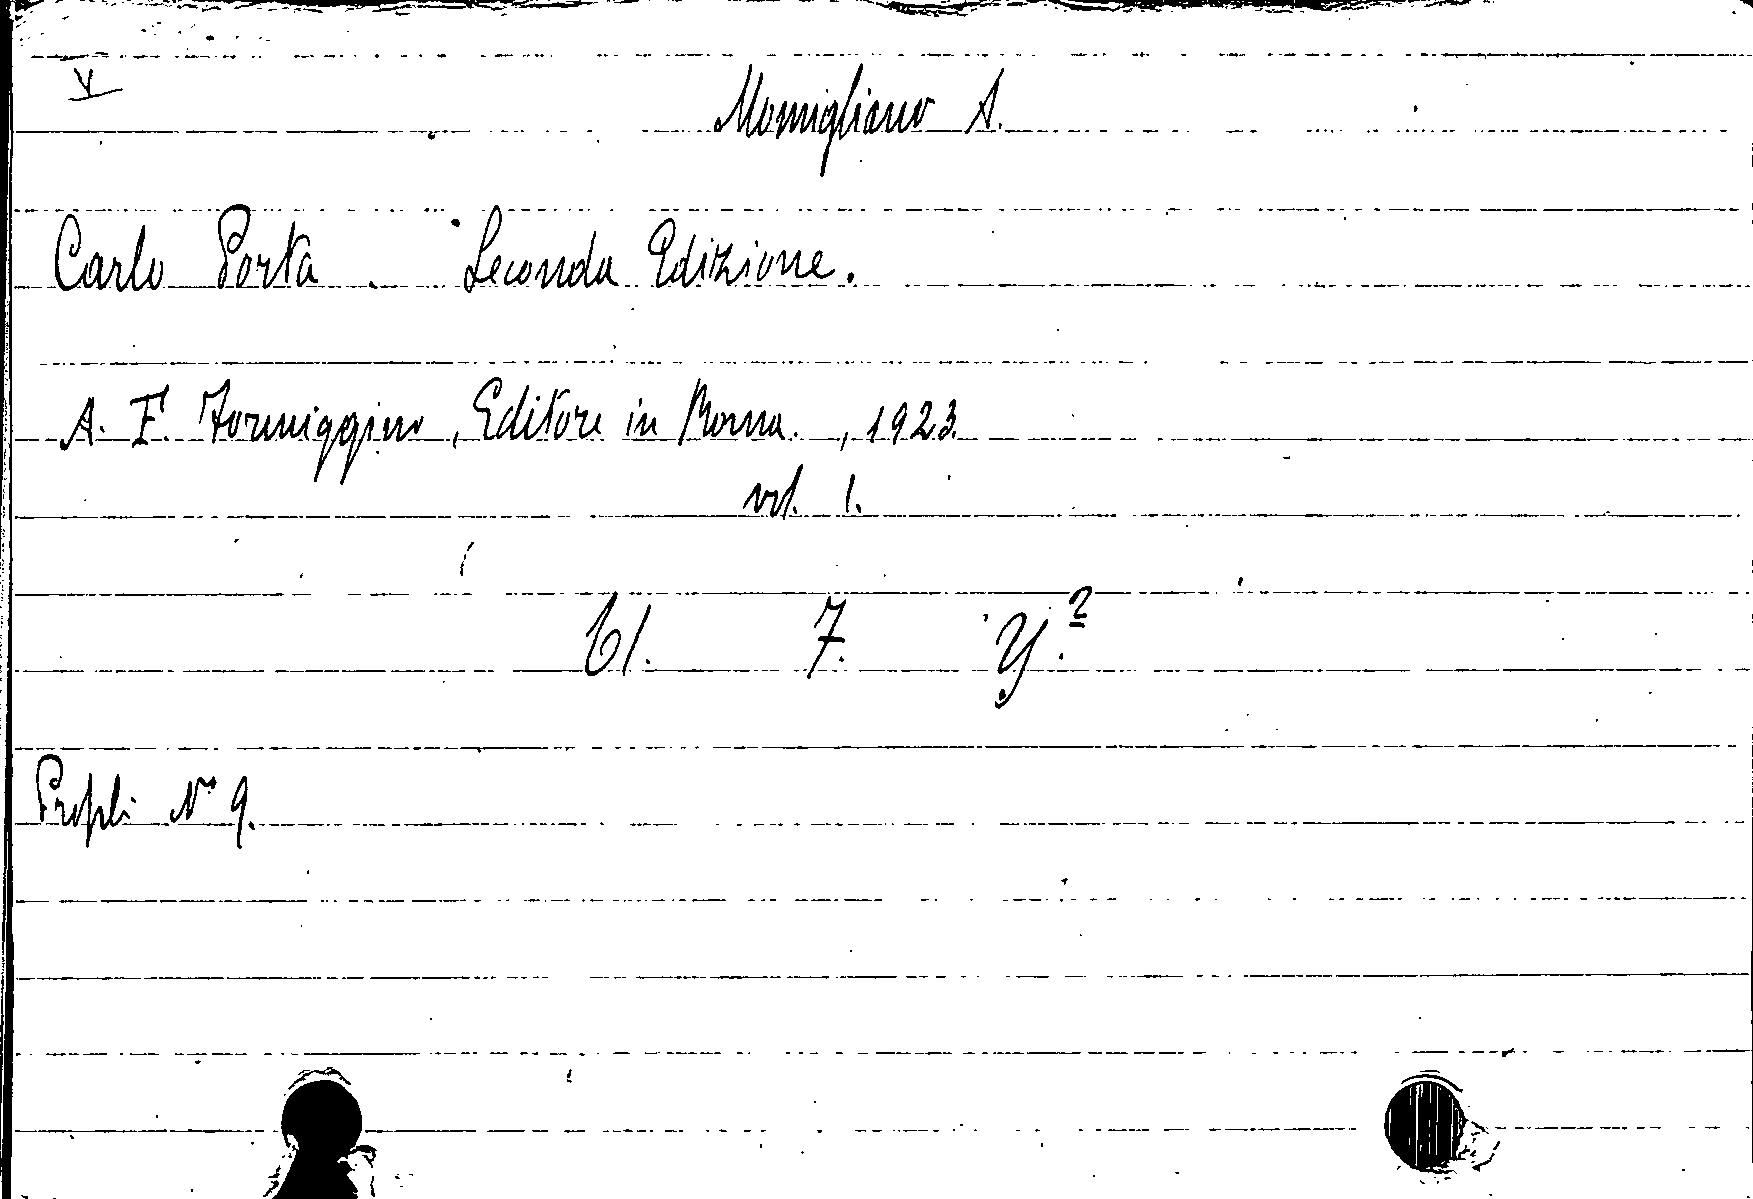 V
Momigliano A.
Carlo Porta. Seconda Edizione.
A. F. Formiggino, Editore in Roma., 1923.
vol. 1.
61. 7. Y.²
Profili N° 9.